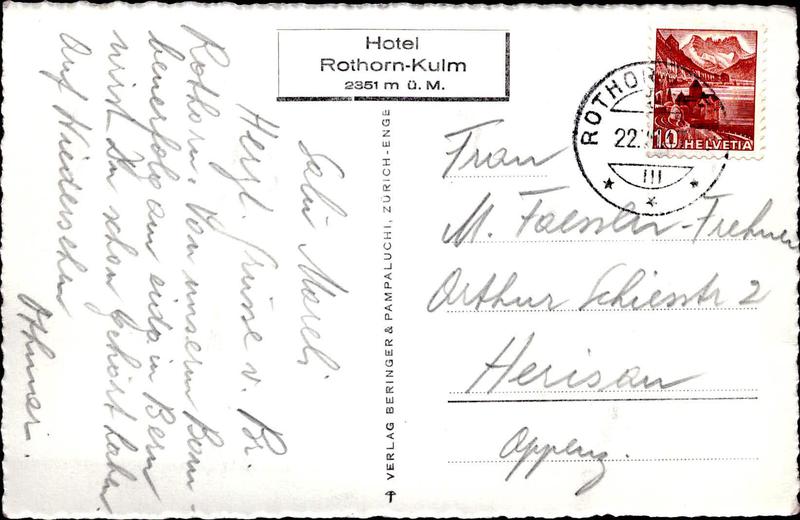 Hotel
Rothorn-Kulm
2351 m ü. M.
ROTHORN
22.
III
10 HELVETIA
Salü Mareli
Herzl. Grüsse v. Br.
Rothorn. Von unserm Bern
am eidg. in Bern
wirst Du schon gehört haben
Auf Wiedersehen
Othmar.
VERLAG BERINGER & PAMPALUCHI, ZÜRICH-ENGE
Frau
M. Faessler-Frehner
Arthur Schiesstr 2
Herisau
Appenz.